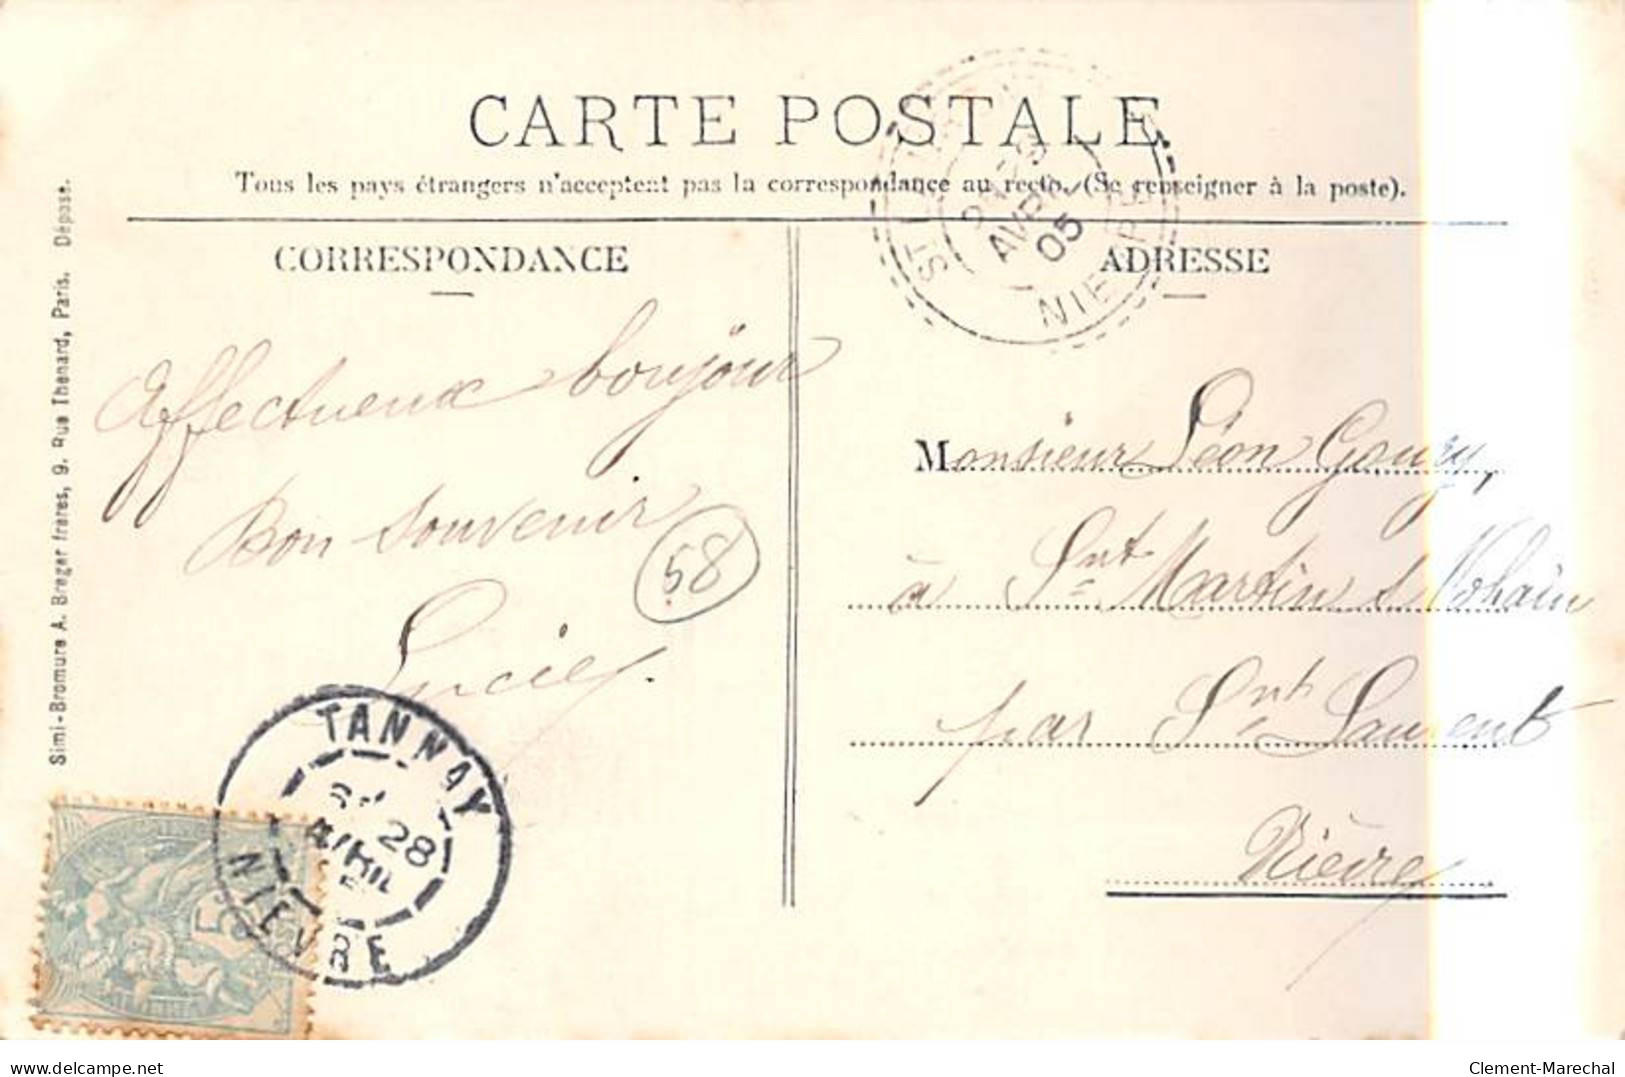 CARTE POSTALE
Tous les pays étrangers n'acceptent pas la correspondance au recto. (Se renseigner à la poste).
CORRESPONDANCE
ADRESSE
Affectueux bonjour
Bon souvenir
58
Monsieur Léon Gouzy,
à Snt Martin s Nohain
par Snt Laurent
Nièvre
Simi-Bromure A. Breger frères, 9. Rue Thenard, Paris. Dépose.
ST
AVRIL
05
NIEVRE
TANNAY
28
AVRIL
NIEVRE
5
delcampe.net
Clement-Marechal